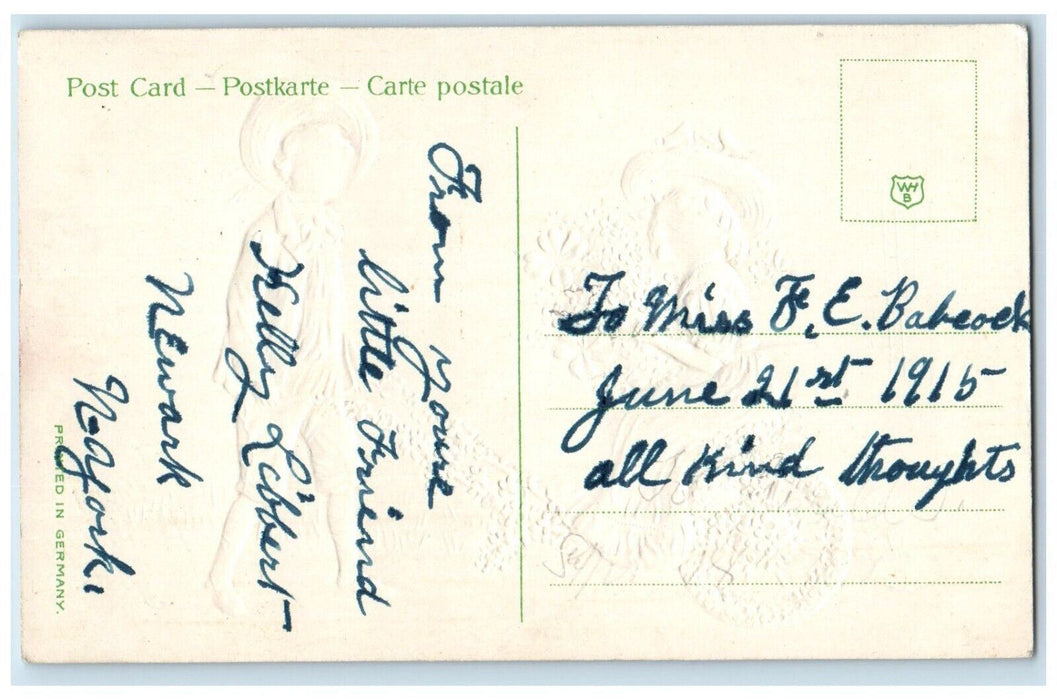 Post Card — Postkarte — Carte postale
WH
B
From your
little Friend
Kelly Libbert
NEwark
N-York.
PRINTED IN GERMANY.
To Miss F. E. Babcock
June 21st 1915
all kind thoughts